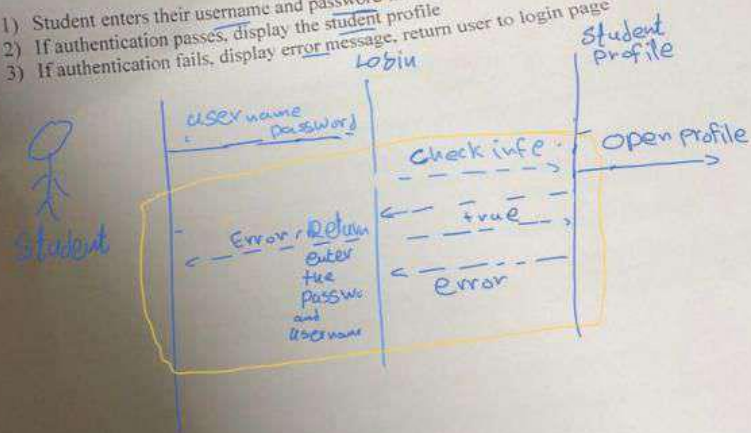 1) Student enters their username and password
2) If authentication passes, display the student profile
3) If authentication fails, display error message, return user to login page
Lobin
Student
profile
username
password
Check infe
open profile
true
Error, Return
enter
the
passwo
and
username
error
Student